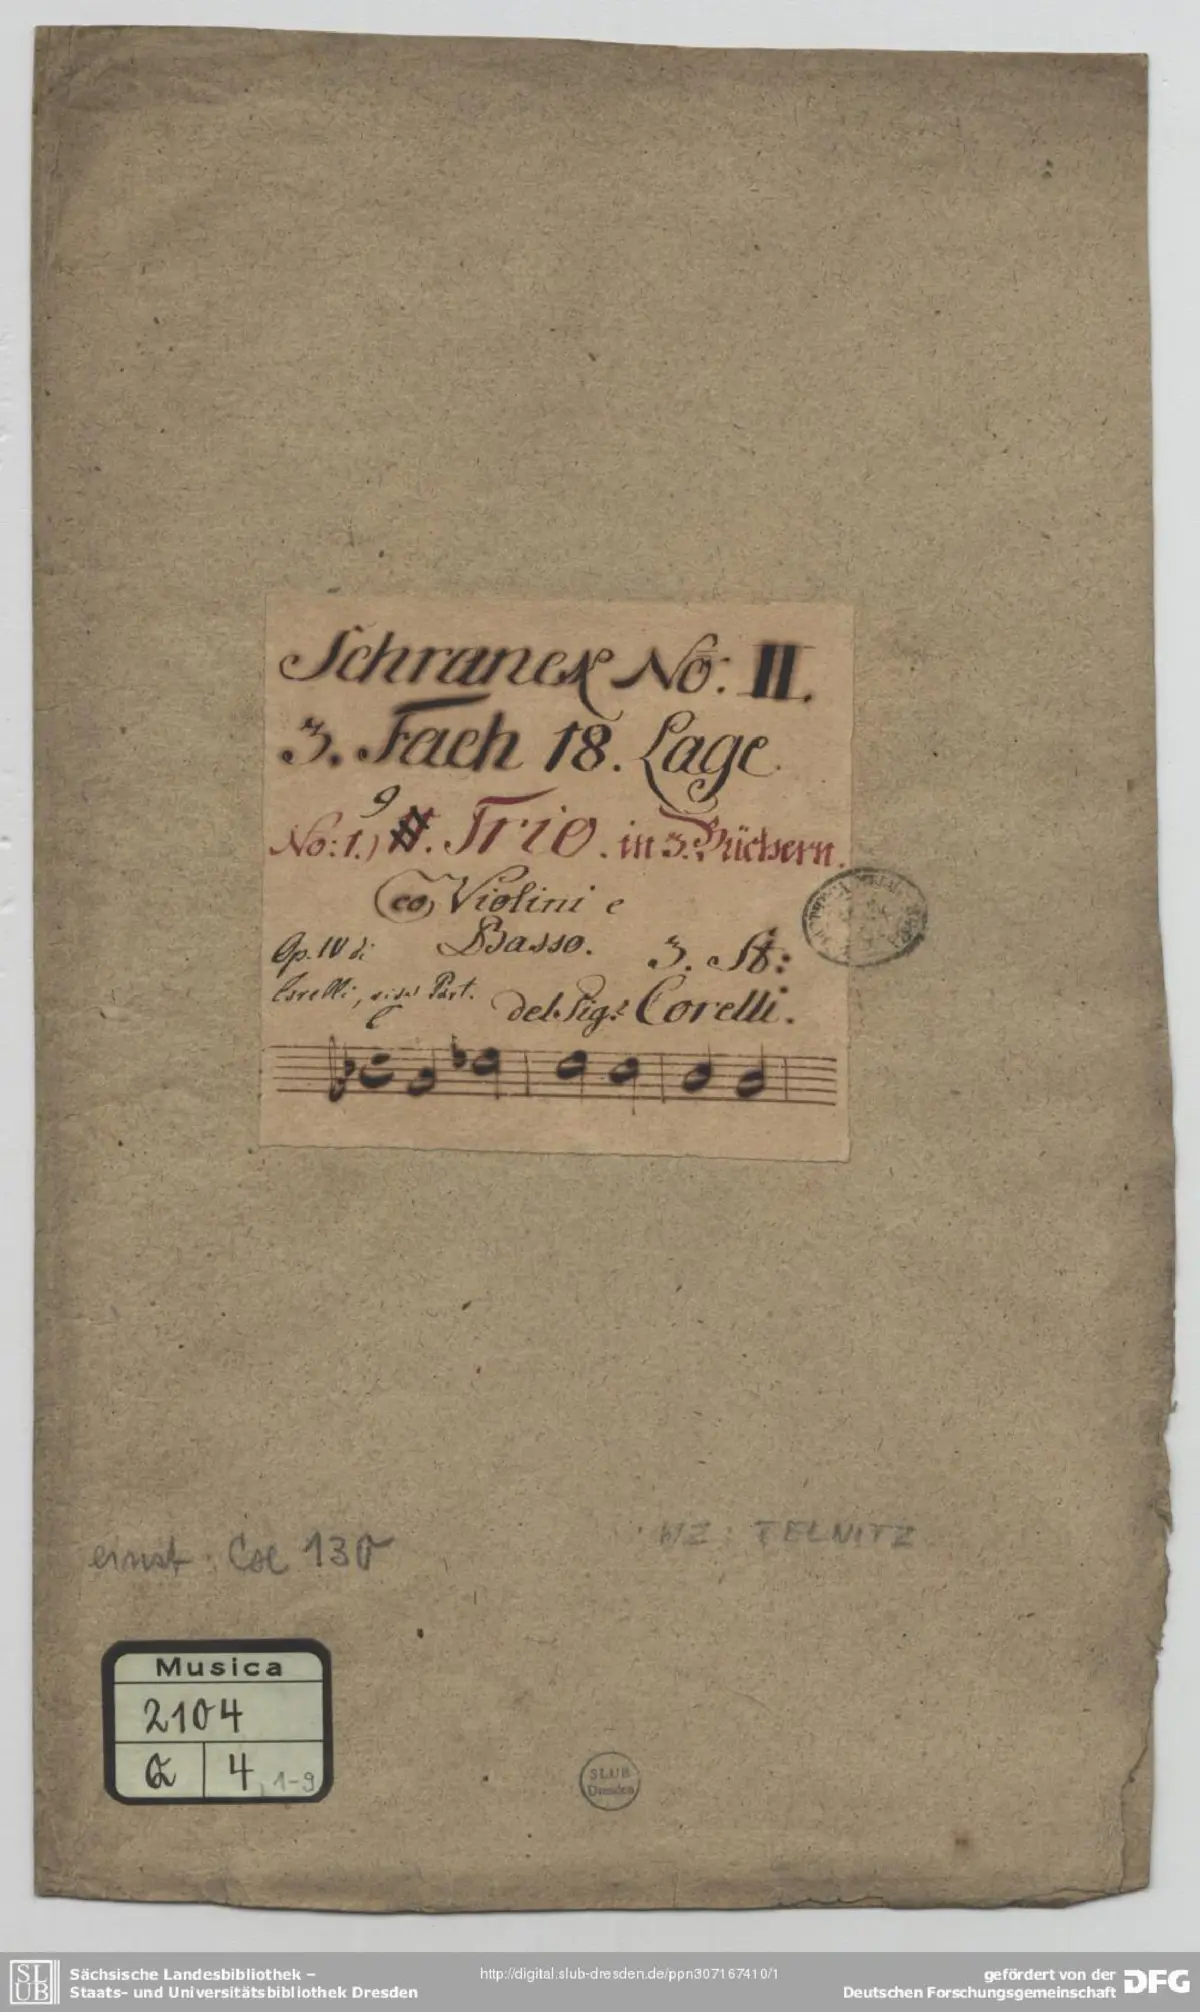 Schranck No: II.
3. Fach 18. Lage
9
No: 1.) Trio. in 3. Büchern.
co Violini e
Basso. 3. St:
Op. IV di
Corelli, Part.
del Sigr Corelli.
einst: Coe 130
WZ: TELNITZ
Musica
2104
Q 4, 1-9
SLUB
Dresden
SLUB
Sächsische Landesbibliothek –
Staats- und Universitätsbibliothek Dresden
http://digital.slub-dresden.de/ppn307167410/1
gefördert von der
Deutschen Forschungsgemeinschaft DFG